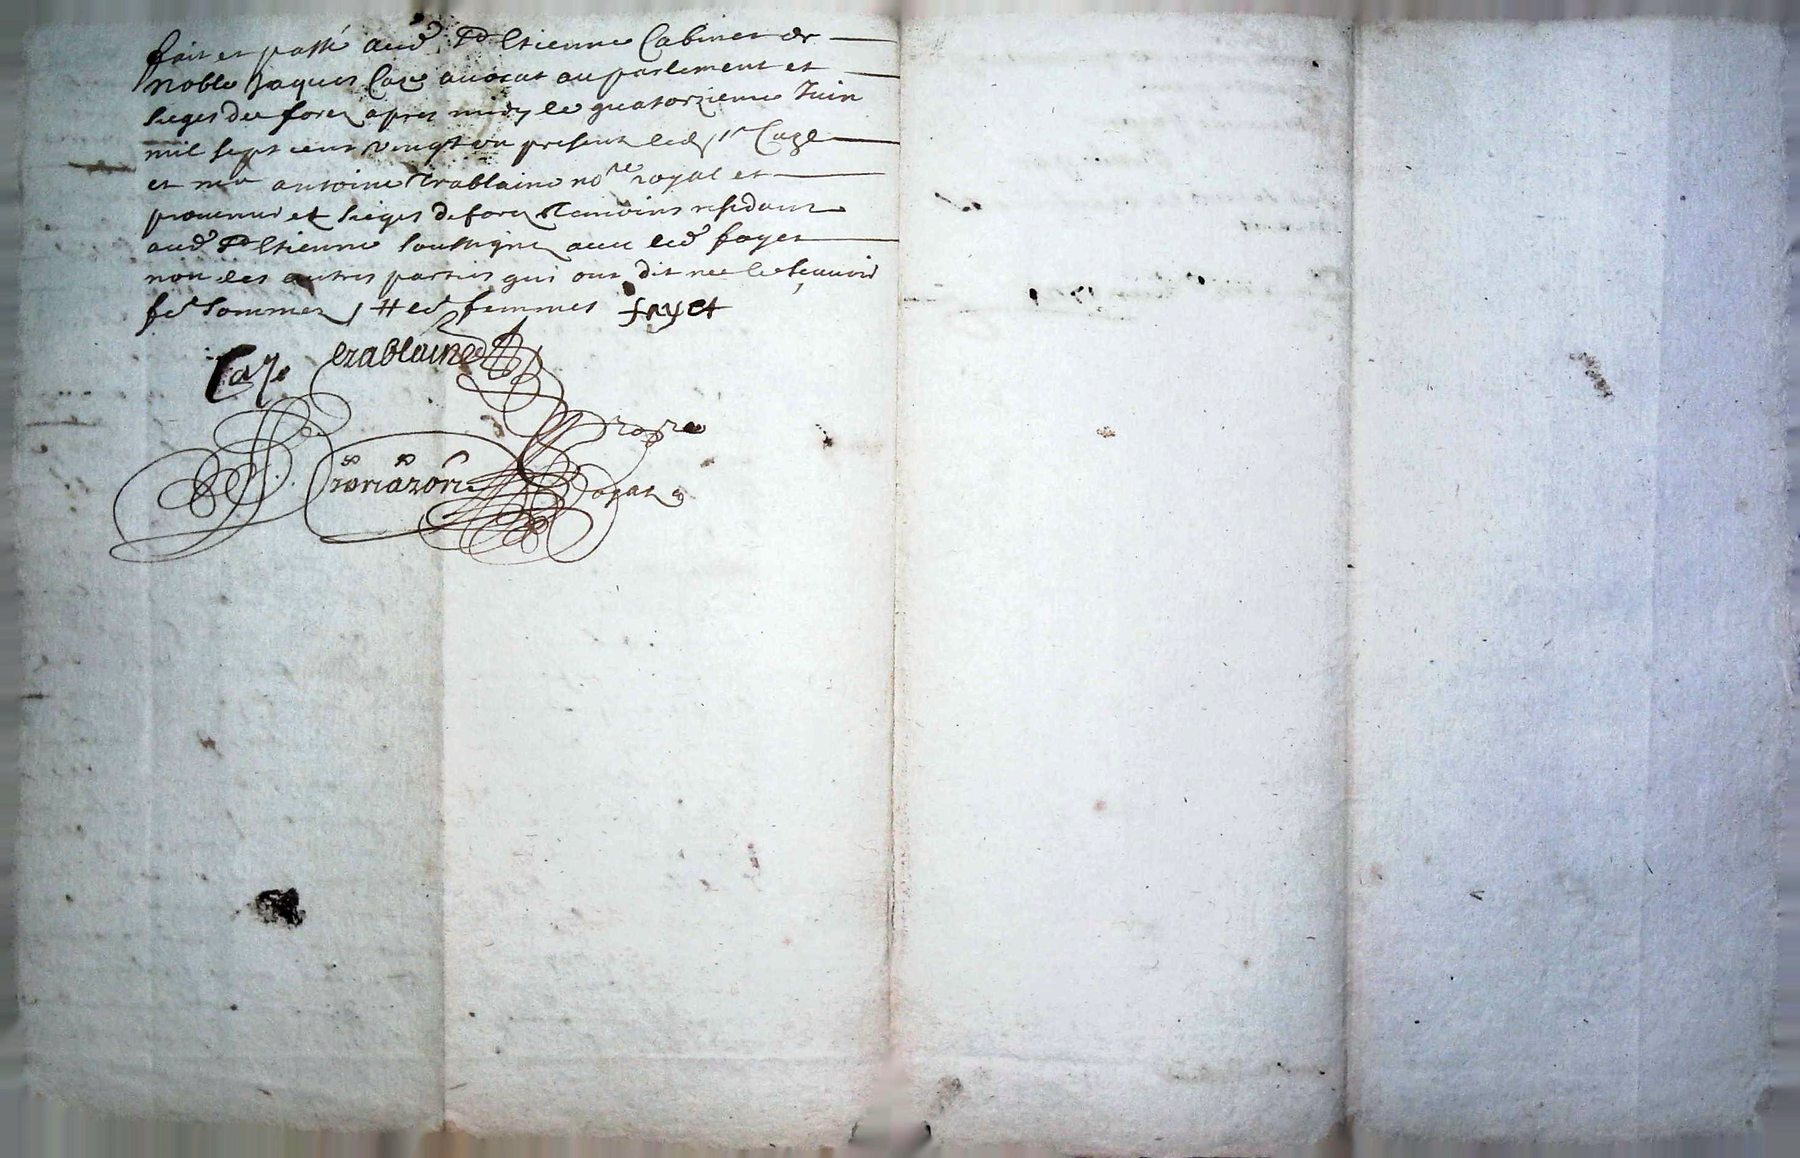 fait et passé aud St Etienne Cabinet de
Noble Jaques Caze avocat au parlement et
sieges de forez apres midy le quatorzieme Juin
mil sept cent vingt un present led Sr Caze
et me antoine Crablaine nore royal et
et sieges de forez temoins residant
aud St Etienne soussignez avec led fayet
non les autres parties qui ont dit ne le scauoir
de ce sommez / # ed femmes fayet
Caze Crablaine